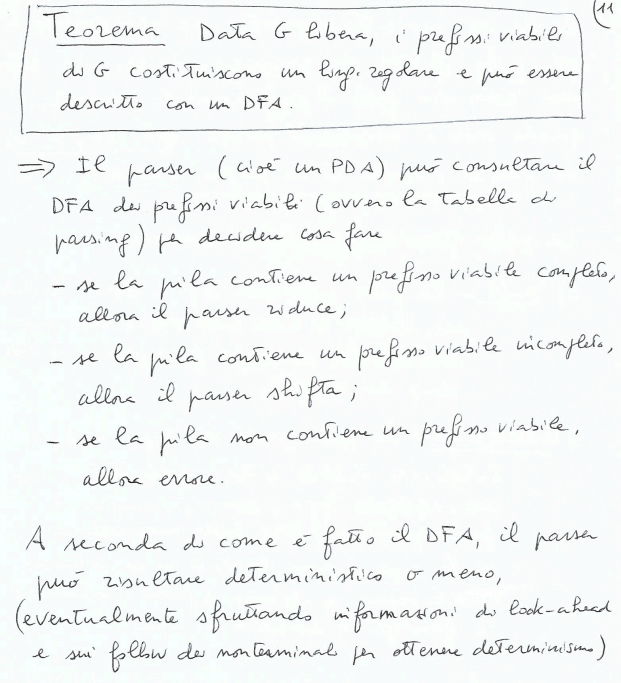 11
Teorema Data G libera, i prefissi viabili
di G costituiscono un ling. regolare e può essere
descritto con un DFA.
⇒ Il parser (cioè un PDA) può consultare il
DFA dei prefissi viabili (ovvero la Tabella di
parsing) per decidere cosa fare
- se la pila contiene un prefisso viabile completo,
allora il parser riduce;
- se la pila contiene un prefisso viabile incompleto,
allora il parser shifta;
- se la pila non contiene un prefisso viabile,
allora errore.
A seconda di come è fatto il DFA, il parser
può risultare deterministico o meno,
(eventualmente sfruttando informazioni di look-ahead
e sui follow dei nonterminali per ottenere determinismo)